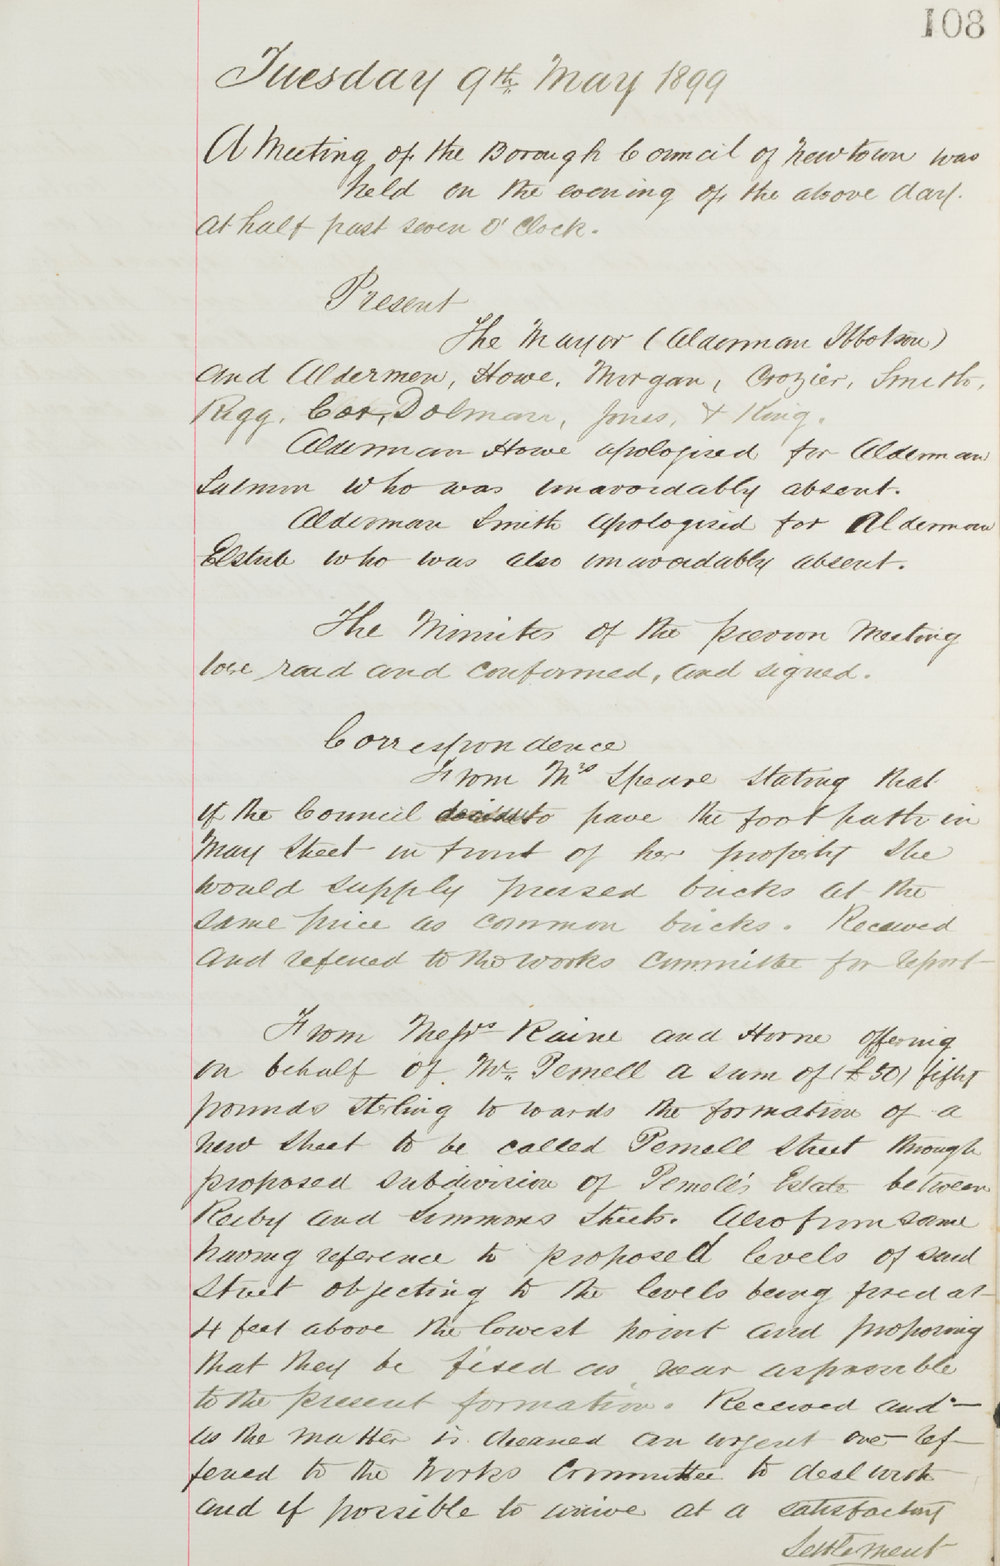 108
Tuesday 9th May 1899
A Meeting of the Borough Council of Newtown was
held on the evening of the above day.
at half past seven O'Clock.
Present
The Mayor (Alderman Ibbotson)
and Aldermen, Howe, Morgan, Crozier, Smith,
Rigg, Cox, Dolman, Jones, & King.
Alderman Howe apologised for Alderman
Salmon who was unavoidably absent.
Alderman Smith apologised for Alderman
Elstub who was also unavoidably absent.
The Minutes of the previous Meeting
were read and confirmed, and signed.
Correspondence
From Mrs Speare stating that
if the Council to pave the footpath in
May Street in front of her property she
would supply pressed bricks at the
same price as common bricks. Received
and referred to the Works Committee for report
From Messrs Raine and Horne offering
on behalf of Mr. Pemell a sum of (£50) fifty
pounds sterling towards the formation of a
new Street to be called Pemell Street through
proposed subdivision of Pemell's Estate between
Reiby and Simmons Streets. Also from same
having reference to proposed levels of said
Street objecting to the levels being fixed at
4 feet above the lowest point and proposing
that they be fixed as near as possible
to the present formation. Received and
as the matter is deemed an urgent one ref-
ferred to the Works Committee to deal with
and if possible to arrive at a satisfactory
Settlement